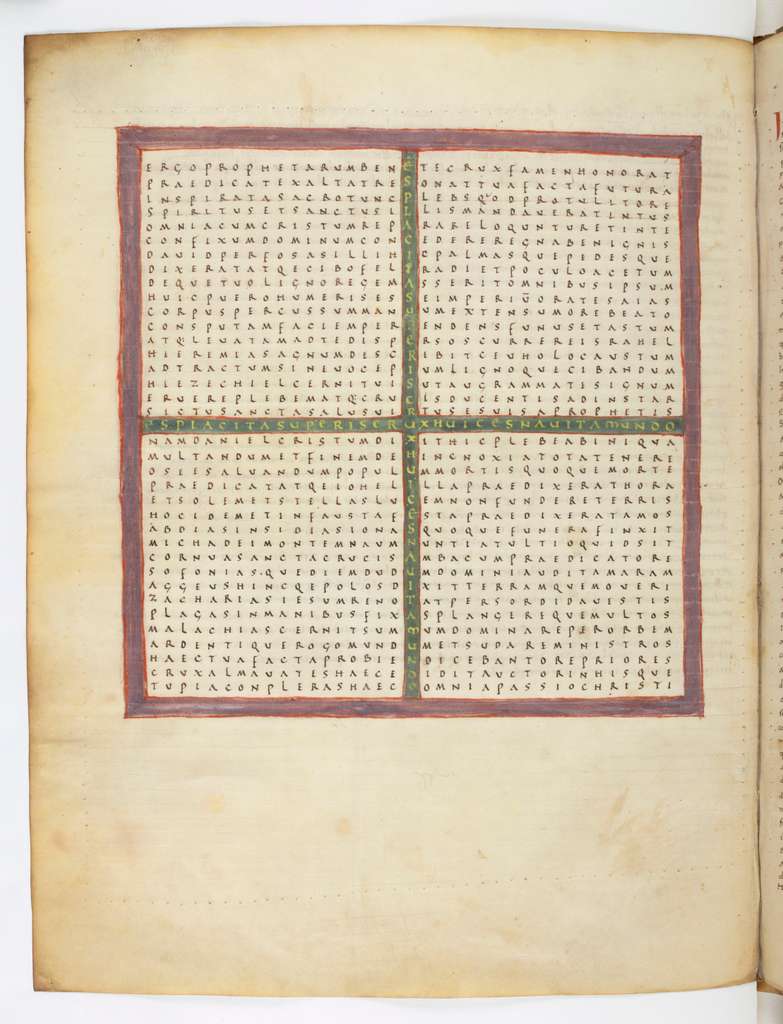 ERGOPROPHETARUMBENETECRUXFAMENHONORAT
PRAEDICATEXALTATRESONATTUAFACTAFUTURA
INSPIRATASACROTUNCPLEBSQ'ODPROTULITORE
SPIRITUSETSANCTUSILLISMANDAUERATINTUS
OMNIACUMCRISTUMREPARARELOQUNTURETINTE
CONFIXUMDOMINUMCONCEDEREREGNABENIGNIS
DAUIDPERFOSASILLIHICPALMASQUEPEDESQUE
DIXERATATQECIBOFELTRADIETPOCULOACETUM
DEQUETUOLIGNOREGEMASSERITOMNIBUSIPSUM
HUICPUEROHUMERISESSEIMPERIŪORATESAIAS
CORPUSPERCUSSUMMANUUMEXTENSUMOREBEATO
CONSPUTAMFACIEMPERPENDENSFUNUSETASTUM
ATQ;LEUATAMADTEDISPERSOSCURREREISRAHEL
HIEREMIASAGNUMDESCRIBITCEUHOLOCAUSTUM
ADTRACTUMSINEUOCEPIUMLIGNOQUECIBANDUM
HIEZECHIELCERNITUISUTAUGRAMMATESIGNUM
ERUEREPLEBEMATQ;CRUC
SICTUSSANCTASALUSUIRTUSESUISAPROPHETIS
ESPLACITASUPERISCRUXHUICESNAUITAMUNDO
NAMDANIELCRISTUMDEXITHICPLEBEABINIQUA
MULTANDUMETFINEMDEHINCNOXIATOTATENERE
OSEESALUANDUMPOPULUMMORTISQUOQUEMORTE
PRAEDICATATQEIOHELILLAPRAEDIXERATHORA
ETSOLEMETSTELLASLUCEMNONFUNDERETERRIS
HOCIDEMETINFAUSTAFESTAPRAEDIXERATAMOS
ABDIASINSIBIASIONAMSQUOQUEFUNERAFINXIT
MICHADEIMONTEMNAUMNUNTIATULTIOQUIDSIT
CORNUASANCTACRUCISAMBACUMPRAEDICATORE
SOFONIAS.QUEDIEMDUDUMDOMINIAUDITAMARAM
AGGEUSHINCQEPOLOSDIXITTERRAMQUEMOUERI
ZACHARIASIESUMRENOTATPERSORDIDAUESTIS
PLAGASINMANIBUSFIXASPLANGEREQUEMULTOS
MALACHIASCERNITSUMMUMDOMINAREPERORBEM
ARDENTIQUEROGOMUNDUMETSUDAREMINISTROS
HAECTUAFACTAPROBIENDICEBANTOREPRIORES
CRUXALMAUATESHAECEDIDITAUCTORINHISQUE
TUPIACONPLERASHAECOOMNIAPASSIOCHRISTI